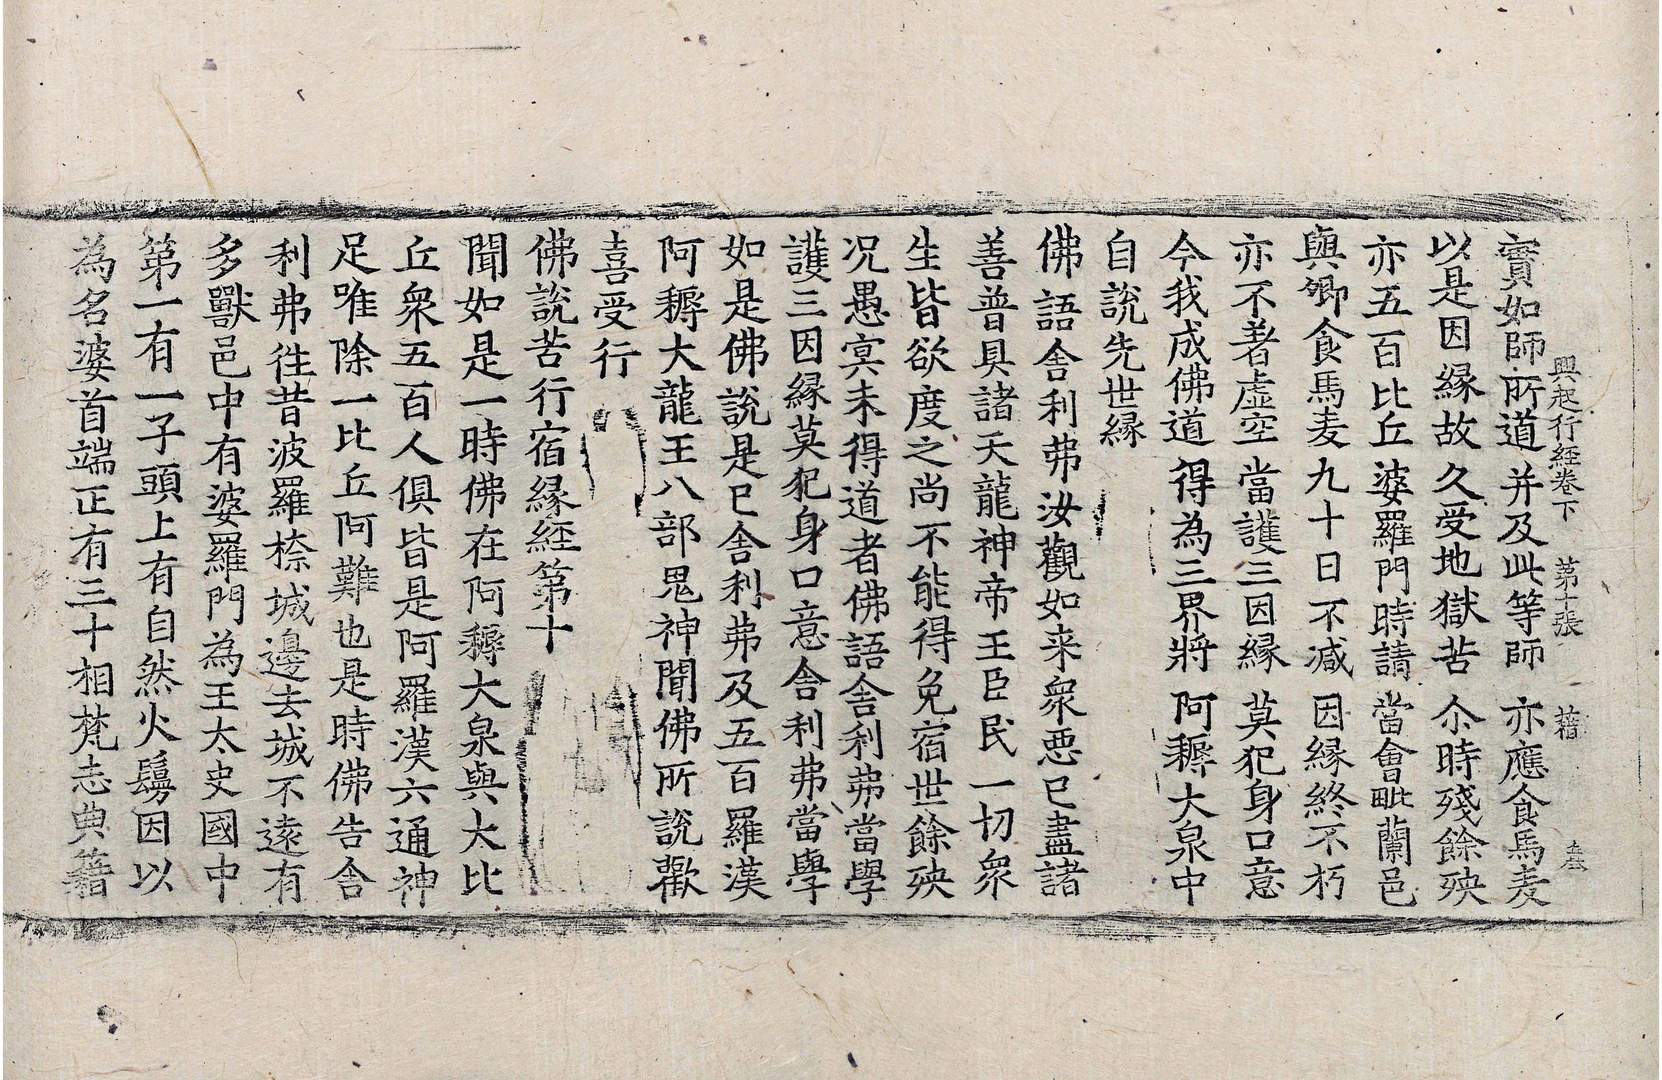 興起行經卷下　第十張　藉
實如師所道　并及此等師　亦應食馬麦
以是因縁故　久受地獄苦　尒時殘餘殃
亦五百比丘　婆羅門時請　當會毗蘭邑
與卿食馬麦　九十日不减　因縁終不朽
亦不著虚空　當護三因縁　莫犯身口意
今我成佛道　得為三界將　阿耨大泉中
自說先世縁
佛語舎利弗汝觀如来衆惡已盡諸
善普具諸天龍神帝王臣民一切衆
生皆欲度之尚不能得免宿世餘殃
况愚冥未得道者佛語舎利弗當學
護三因縁莫犯身口意舎利弗當學
如是佛說是已舎利弗及五百羅漢
阿耨大龍王八部鬼神聞佛所說歡
喜受行
佛說苦行宿縁經第十
聞如是一時佛在阿耨大泉與大比
丘衆五百人俱皆是阿羅漢六通神
足唯除一比丘阿難也是時佛告舎
利弗往昔波羅㮈城邊去城不遠有
多獸邑中有婆羅門為王太史國中
第一有一子頭上有自然火鬘因以
為名婆首端正有三十相梵志典籍